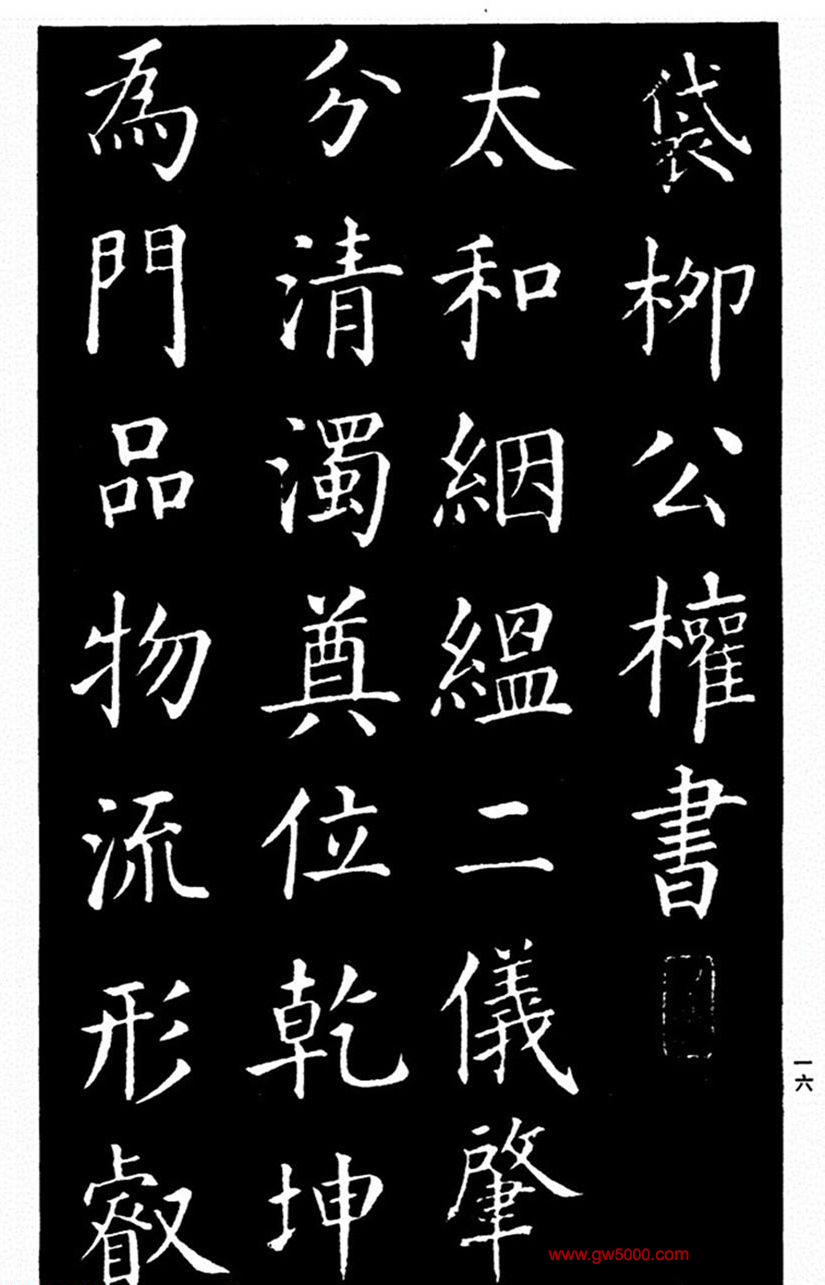 袋柳公權書
太和絪緼二儀肇
分清濁奠位乾坤
為門品物流形叡
一六
www.gw5000.com